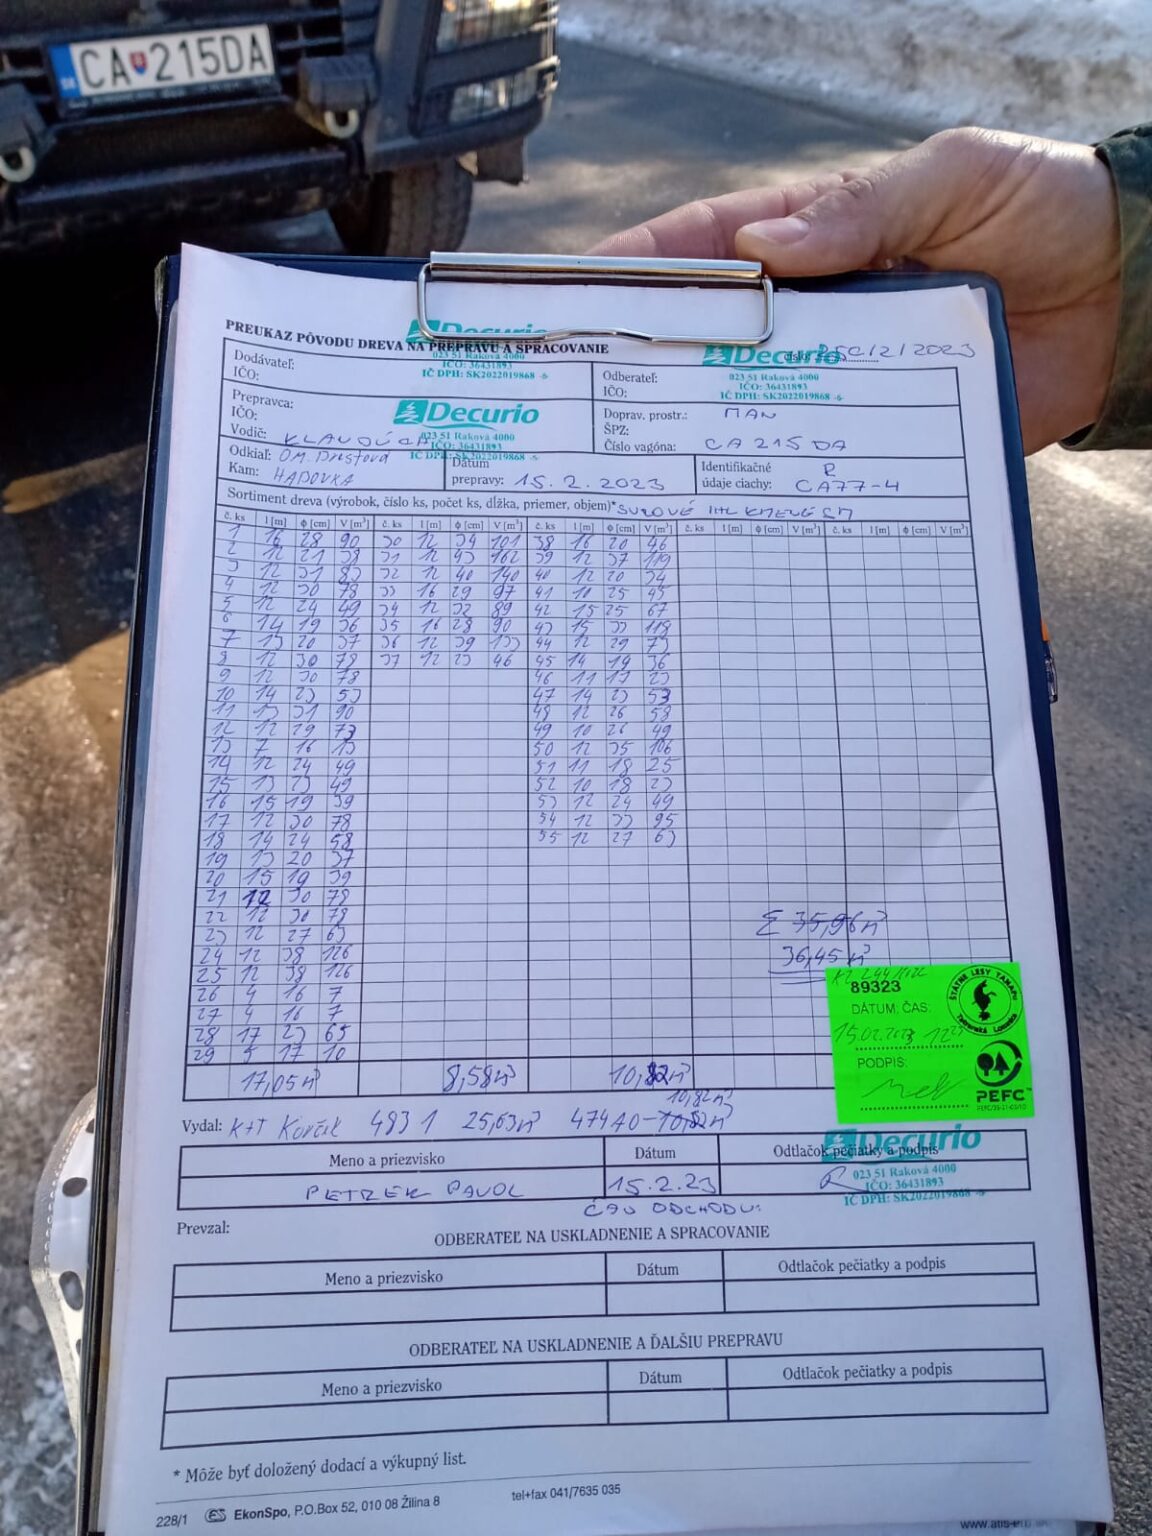 CA 215DA
SK
PREUKAZ PÔVODU DREVA NA PREPRAVU A SPRACOVANIE
Decurio
023 51 Raková 4000
IČO: 36431893
IČ DPH: SK2022019868 -6-
Dodávateľ:
IČO:
Decurio
číslo: 250/2/2023
023 51 Raková 4000
IČO: 36431893
IČ DPH: SK2022019868 -6-
Odberateľ:
IČO:
Prepravca:
IČO:
Vodič: KLAUDÚCH
Decurio
023 51 Raková 4000
IČO: 36431893
IČ DPH: SK2022019868 -6-
Doprav. prostr.: MAN
ŠPZ:
Číslo vagóna: CA 215 DA
Odkiaľ: OM
Kam: HADOVKA
Dátum
prepravy: 15. 2. 2023
Identifikačné R
údaje ciachy: CA77-4
Sortiment dreva (výrobok, číslo ks, počet ks, dĺžka, priemer, objem)* SUROVÉ IHL KMENE
č. ks l [m] ϕ [cm] V [m³] č. ks l [m] ϕ [cm] V [m³] č. ks l [m] ϕ [cm] V [m³] č. ks l [m] ϕ [cm] V [m³] č. ks l [m] ϕ [cm] V [m³]
1 16 28 90 30 12 34 101 38 16 20 46
2 12 21 38 31 12 43 162 39 12 37 119
3 12 31 83 32 12 40 140 40 12 20 34
4 12 30 78 33 16 29 97 41 10 25 45
5 12 24 49 34 12 32 89 42 15 25 67
6 14 19 36 35 16 28 90 43 15 33 118
7 13 20 37 36 12 39 133 44 12 29 73
8 12 30 78 37 12 23 46 45 14 19 36
9 12 30 78 46 11 17 23
10 14 23 53 47 14 23 53
11 13 31 90 48 12 26 58
12 12 29 73 49 10 26 49
13 7 16 13 50 12 35 106
14 12 24 49 51 11 18 25
15 13 23 49 52 10 18 23
16 15 19 39 53 12 24 49
17 12 30 78 54 12 33 95
18 14 24 58 55 12 27 63
19 13 20 37
20 15 19 39
21 12 30 78
22 12 30 78
23 12 27 63
24 12 38 126
25 12 38 126
26 4 16 7
27 4 16 7
28 17 23 65
29 5 17 10
Σ 35,96 m³
36,45 m³
17,05 m³ 8,58 m³ 10,82 m³
10,82 m³
89323
DÁTUM: ČAS:
15.02.2023 12
PODPIS:
ŠTÁTNE LESY TANAPU
Tatranská Lomnica
PEFC™
Vydal: K+T Korčík 483 1 25,63 m³ 474A0 - 10,82 m³
Decurio
023 51 Raková 4000
IČO: 36431893
IČ DPH: SK2022019868 -6-
Meno a priezvisko Dátum Odtlačok pečiatky a podpis
PETREK PAVOL 15.2.23
ČAS ODCHODU:
Prevzal:
ODBERATEĽ NA USKLADNENIE A SPRACOVANIE
Meno a priezvisko Dátum Odtlačok pečiatky a podpis
ODBERATEĽ NA USKLADNENIE A ĎALŠIU PREPRAVU
Meno a priezvisko Dátum Odtlačok pečiatky a podpis
* Môže byť doložený dodací a výkupný list.
228/1 ES EkonSpo, P.O.Box 52, 010 08 Žilina 8 tel+fax 041/7635 035